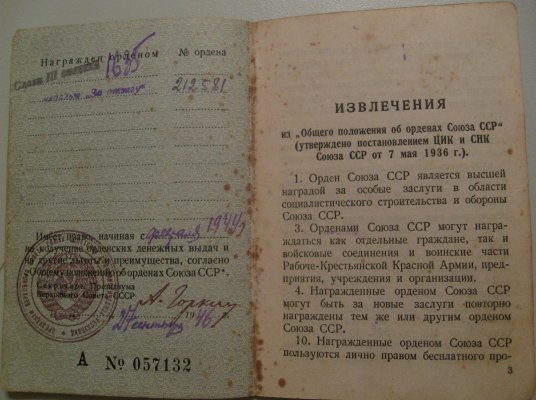 Награжден орденом № ордена
Слава III степени 1685
медалью "За отвагу" 212581
Имеет право, начиная с февраля 1944 г.
на получение орденских денежных выдач и
на другие льготы и преимущества, согласно
„Общему положению об орденах Союза ССР".
Секретарь Президиума
Верховного Совета СССР
А. Горкин
27 сентября 1946 г.
А № 057132
ИЗВЛЕЧЕНИЯ
из „Общего положения об орденах Союза ССР"
(утверждено постановлением ЦИК и СНК
Союза ССР от 7 мая 1936 г.).
1. Орден Союза ССР является высшей
наградой за особые заслуги в области
социалистического строительства и обороны
Союза ССР.
3. Орденами Союза ССР могут награ-
ждаться как отдельные граждане, так и
войсковые соединения и воинские части
Рабоче-Крестьянской Красной Армии, пред-
приятия, учреждения и организации.
4. Награжденные орденом Союза ССР
могут быть за новые заслуги повторно
награждены тем же или другим орденом
Союза ССР.
10. Награжденные орденом Союза ССР
пользуются лично правом бесплатного про-
3